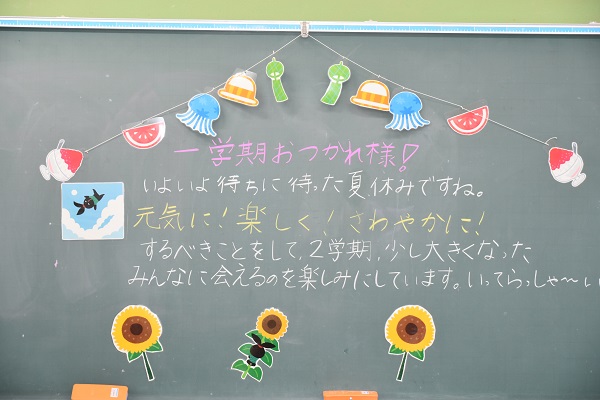 一学期おつかれ様!
いよいよ待ちに待った夏休みですね。
元気に!楽しく!さわやかに!
するべきことをして、2学期、少し大きくなった
みんなに会えるのを楽しみにしています。いってらっしゃ〜い